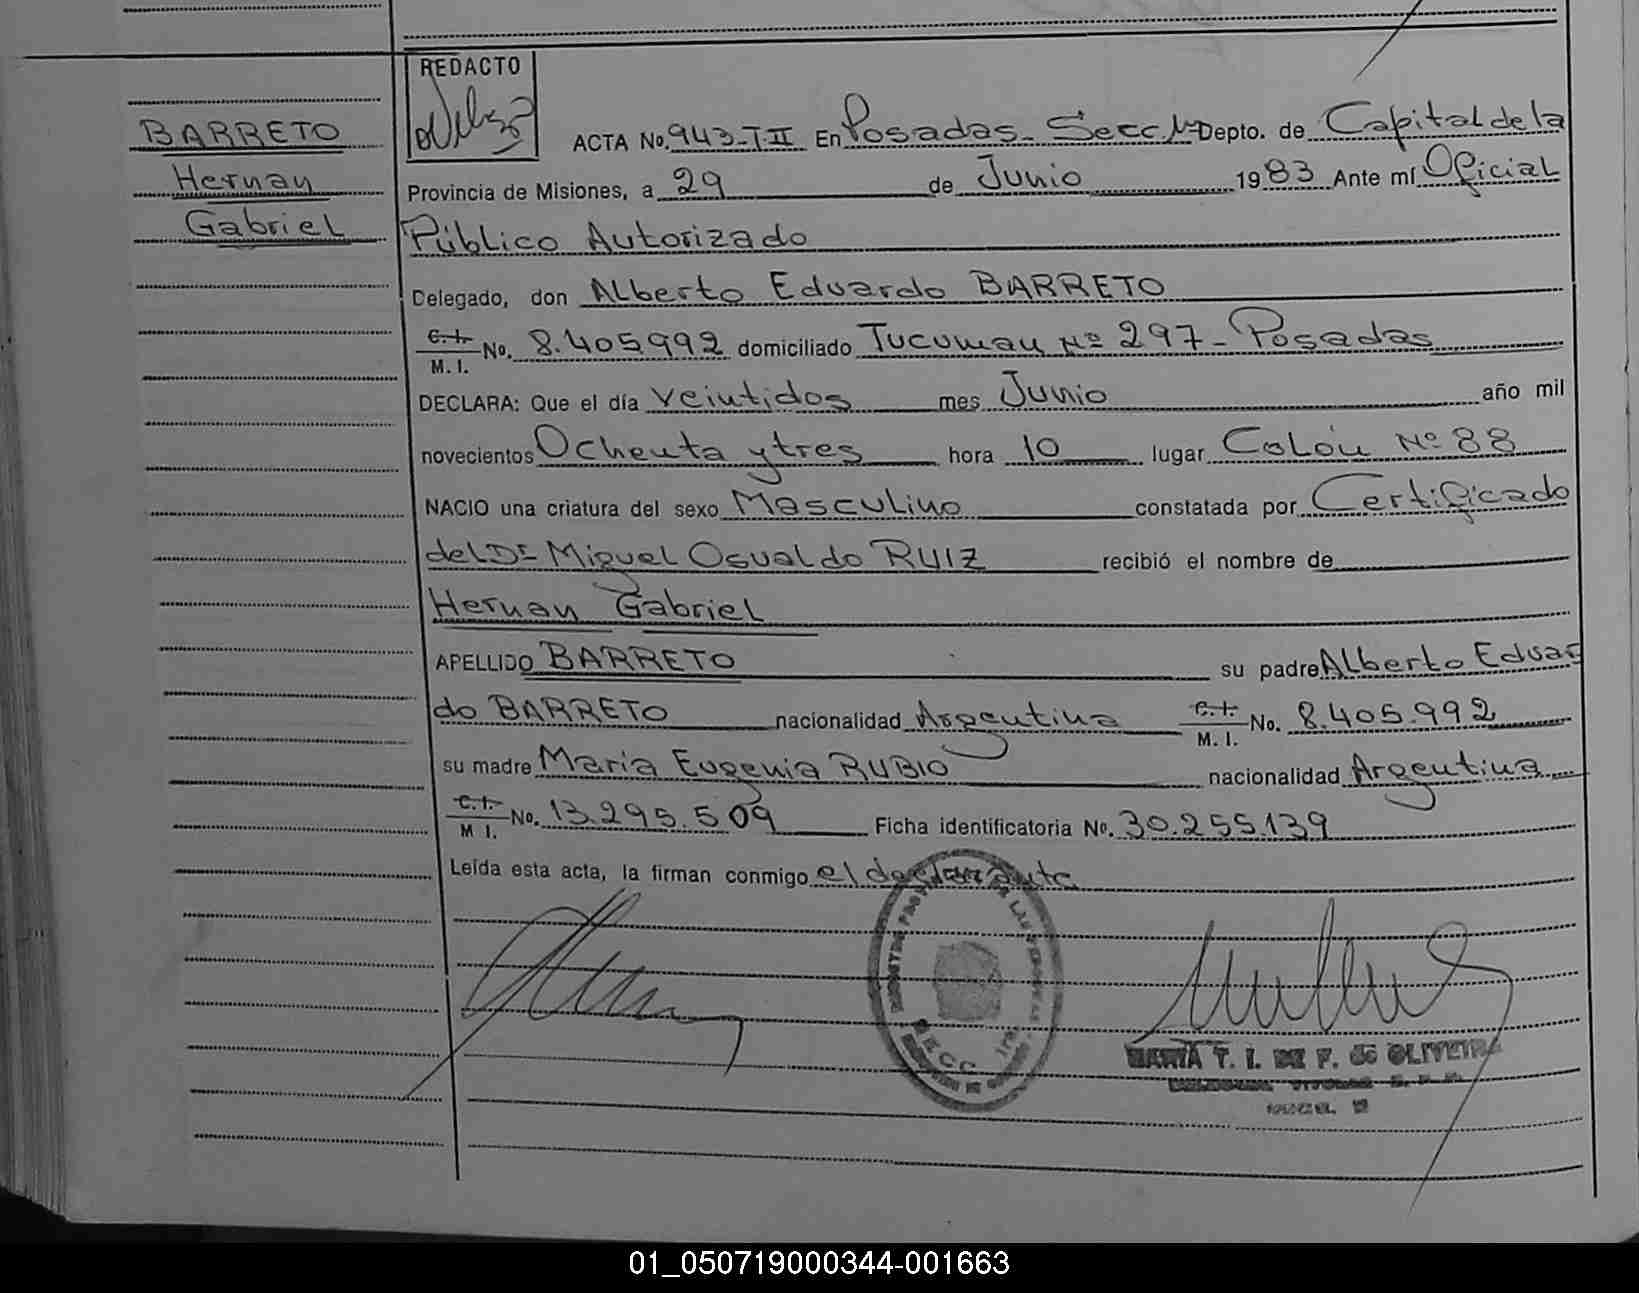 REDACTO
BARRETO
Hernan
Gabriel
ACTA No. 943-T-II En Posadas - Secc 1ª Depto. de Capital de la
Provincia de Misiones, a 29 de Junio 1983 Ante mí Oficial
Público Autorizado
Delegado, don Alberto Eduardo BARRETO
C.I. M. I. No. 8.405.992 domiciliado Tucuman Nº 297 - Posadas
DECLARA: Que el día veintidos mes Junio año mil
novecientos Ochenta y tres hora 10 lugar Colón Nº 88
NACIO una criatura del sexo Masculino constatada por Certificado
del Dr Miguel Osvaldo RUIZ recibió el nombre de
Hernan Gabriel
APELLIDO BARRETO su padre Alberto Eduar
do BARRETO nacionalidad Argentina C.I. M. I. No. 8.405.992
su madre Maria Eugenia RUBIO nacionalidad Argentina
C.I. M I. No. 13.295.509 Ficha identificatoria No. 30.255.139
Leída esta acta, la firman conmigo el declarante
SECC 1ra
MARIA T. I. DE F. de OLIVEIRA
01_050719000344-001663